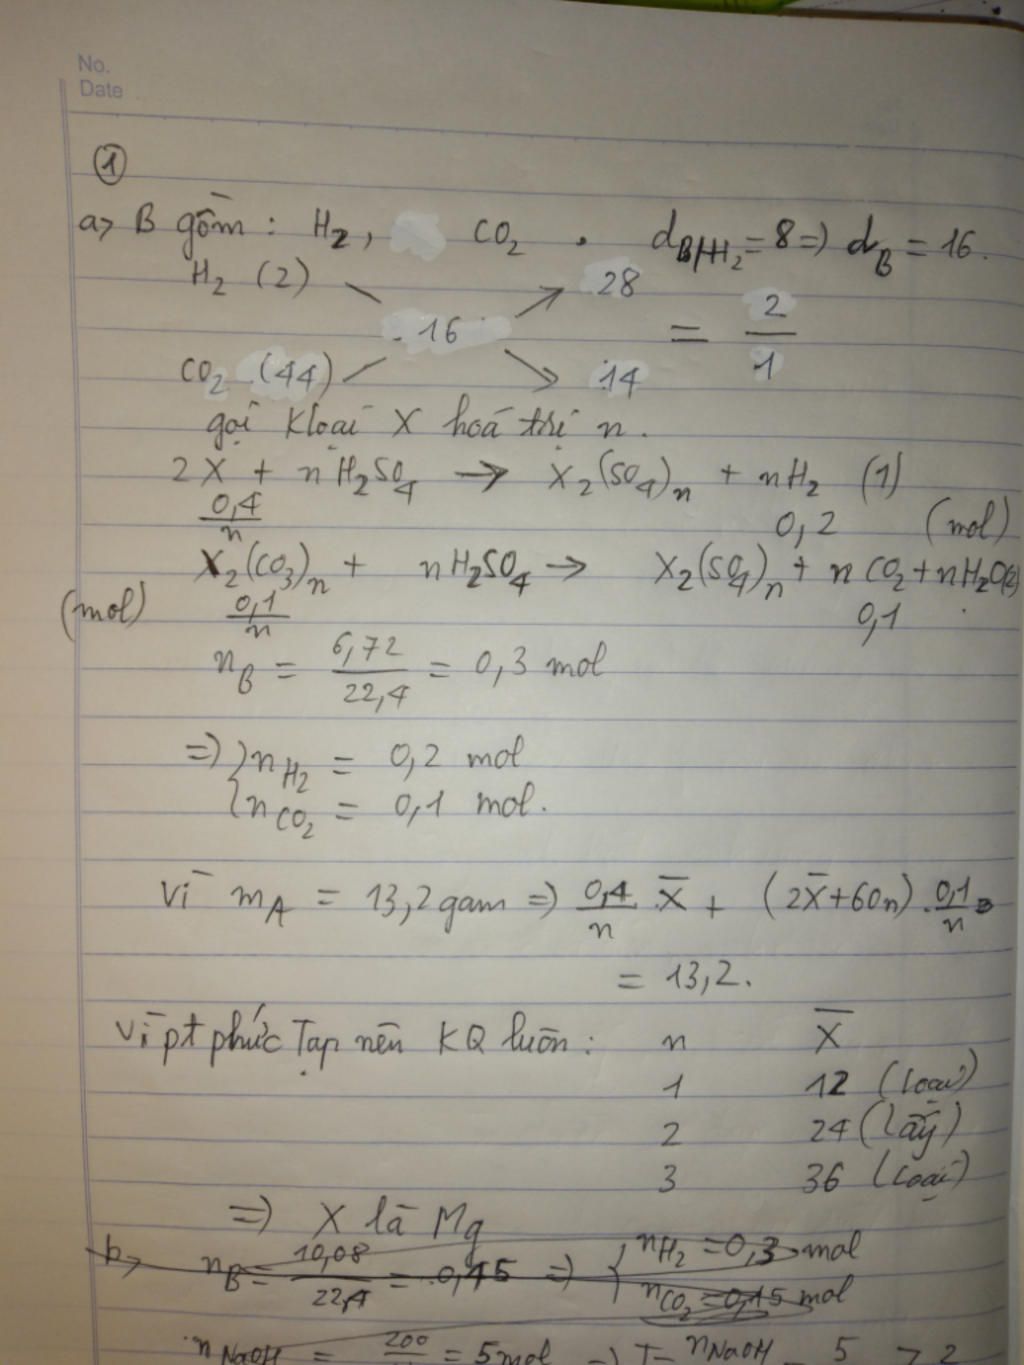 No.
Date
①
a> B gồm : H₂, CO₂ . d_B/H₂ = 8 => d_B = 16.
H₂ (2) 28
16 = 2/1
CO₂ (44) 14
gọi kloại X hoá trị n.
2X + nH₂SO₄ → X₂(SO₄)ₙ + nH₂ (1)
0,4/n 0,2 (mol)
X₂(CO₃)ₙ + nH₂SO₄ → X₂(SO₄)ₙ + nCO₂ + nH₂O(2)
(mol) 0,1/n 0,1
n_B = 6,72/22,4 = 0,3 mol
=> { n_H₂ = 0,2 mol
n_CO₂ = 0,1 mol.
Vì m_A = 13,2 gam => 0,4/n . X̄ + (2X̄+60n) . 0,1/n =
= 13,2.
Vì pt phức Tạp nên KQ luôn : n X̄
1 12 (loại)
2 24 (lấy)
3 36 (loại)
=> X là Mg
b> n_B = 10,08/22,4 = 0,45 => { n_H₂ = 0,3 mol
n_CO₂ = 0,15 mol
n_NaOH = 200 = 5 mol => T = n_NaOH 5 > 2